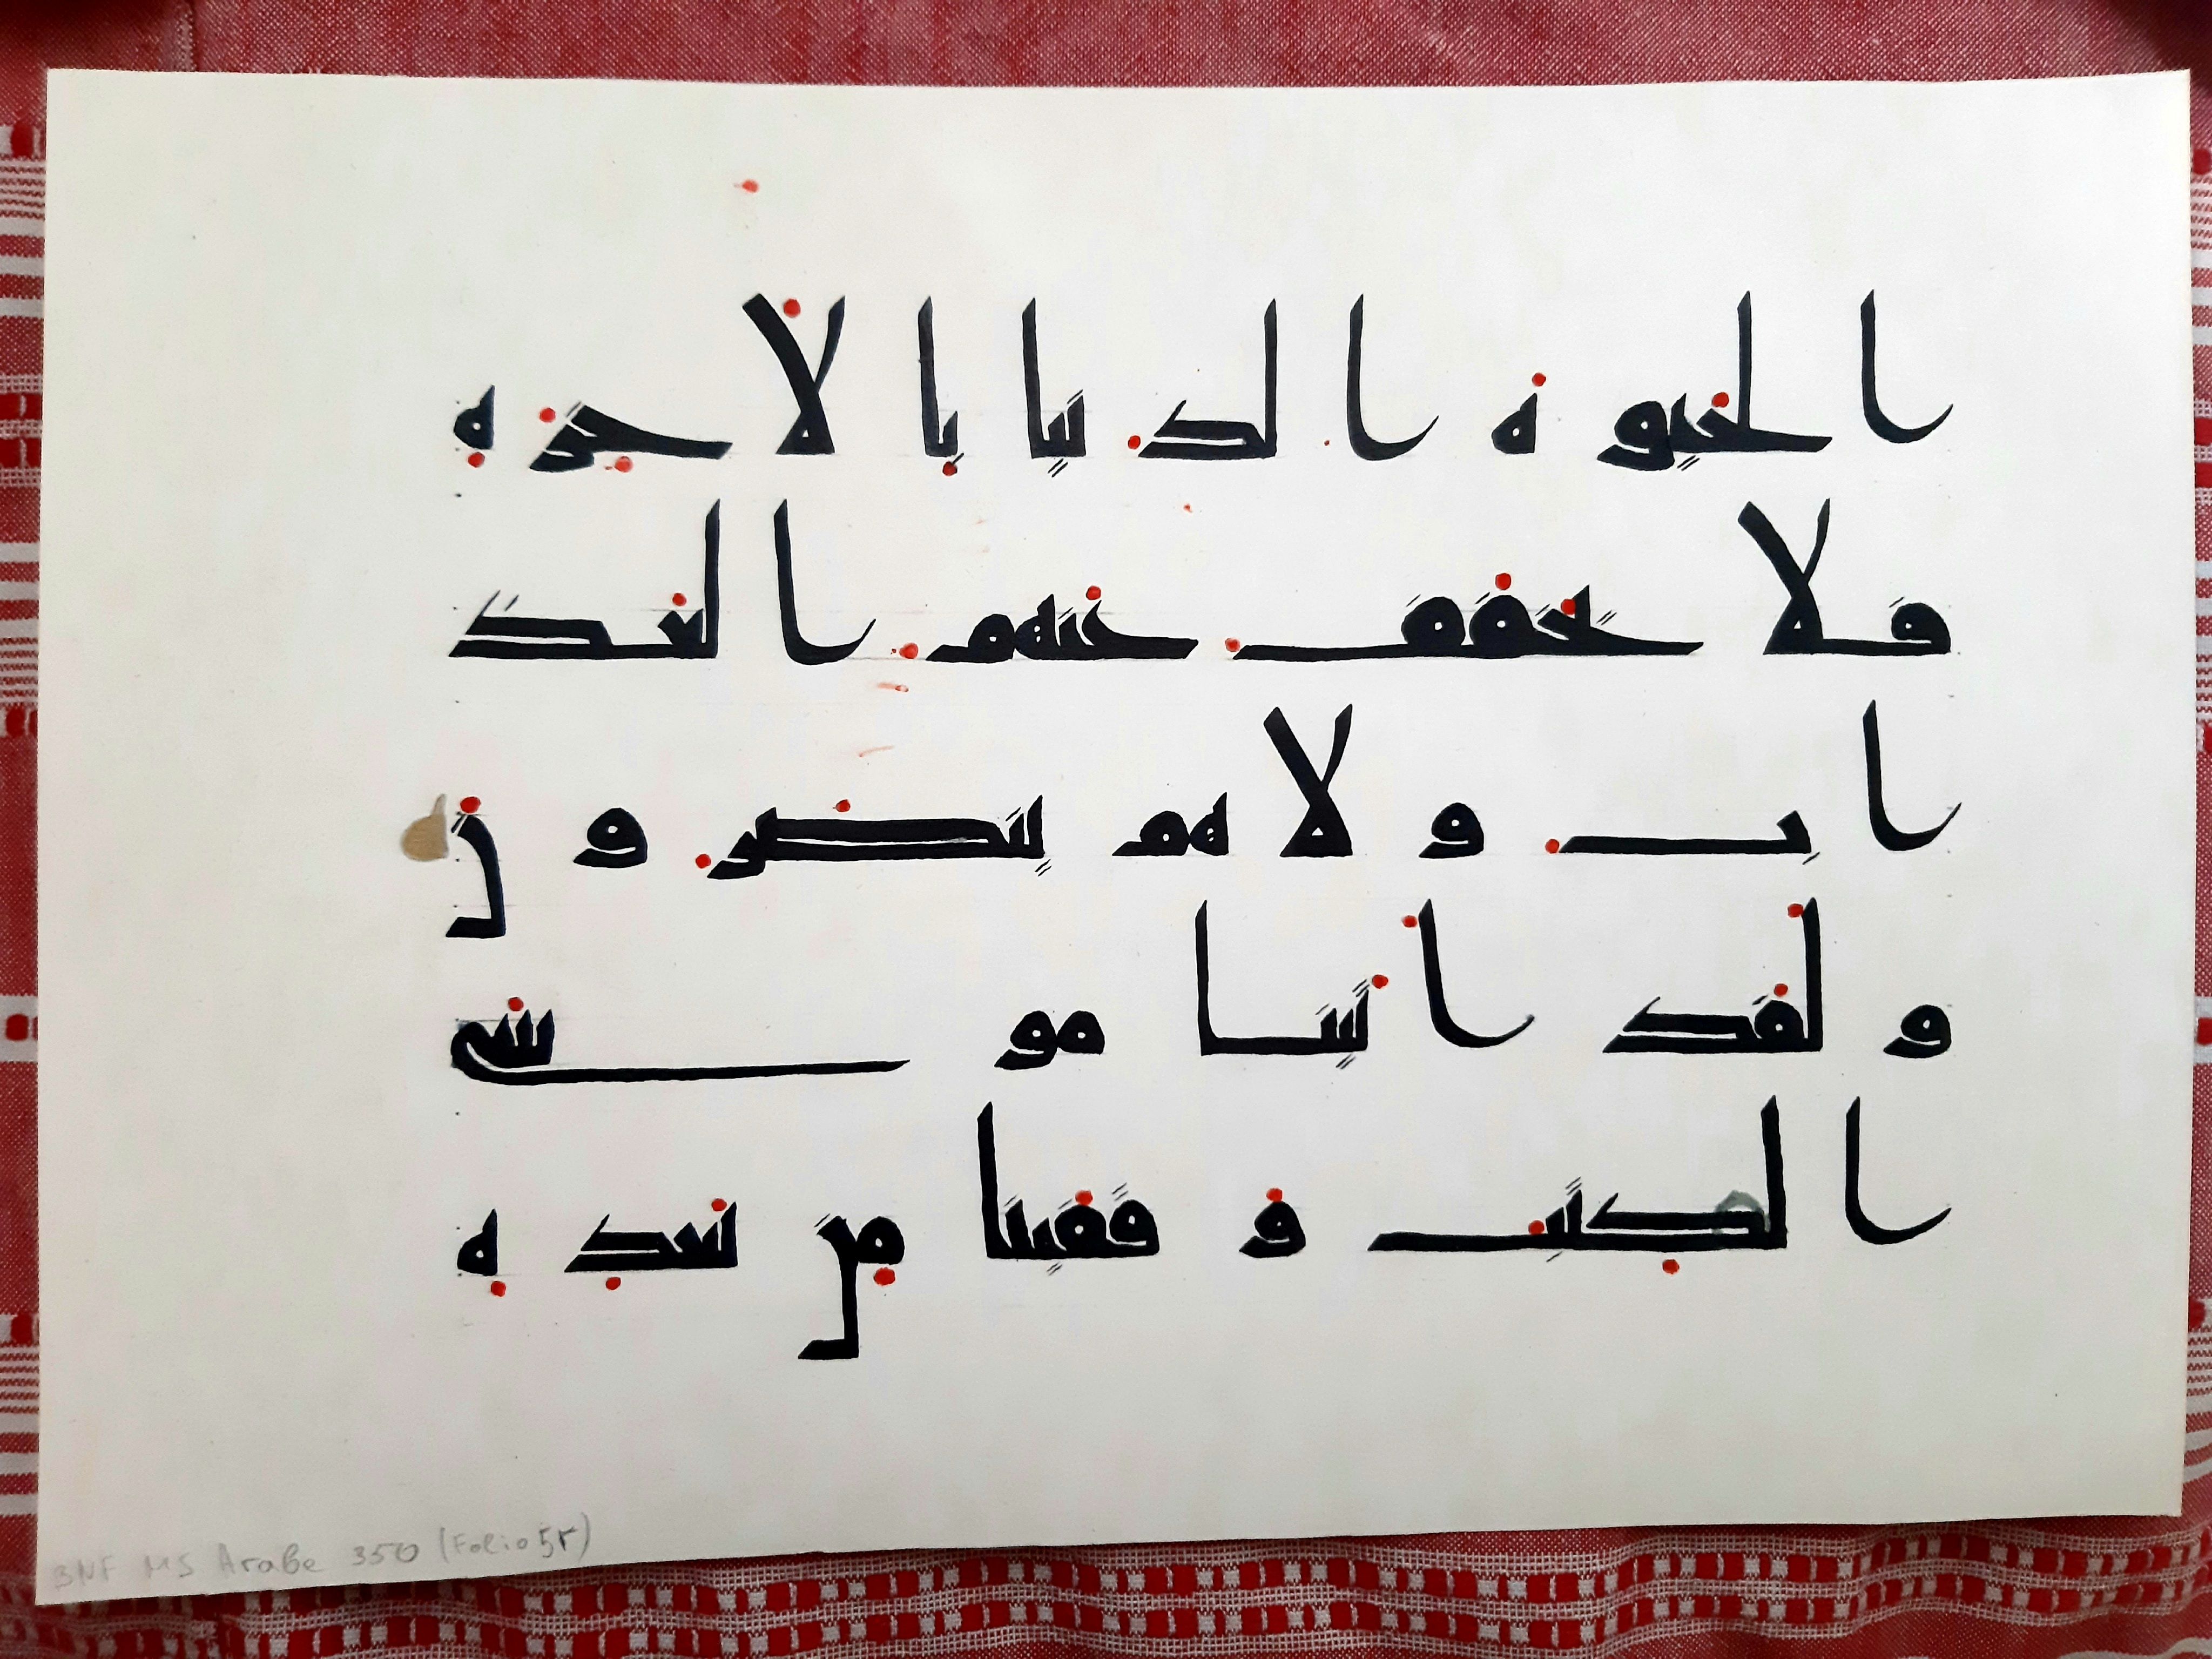 الحيوة الدنيا بالاخرة
فلا يخفف عنهم العذ
اب ولا هم ينصرون
ولقد اتينا موسى
الكتب وقفينا من بعده
BNF MS Arabe 350 (Folio 5r)